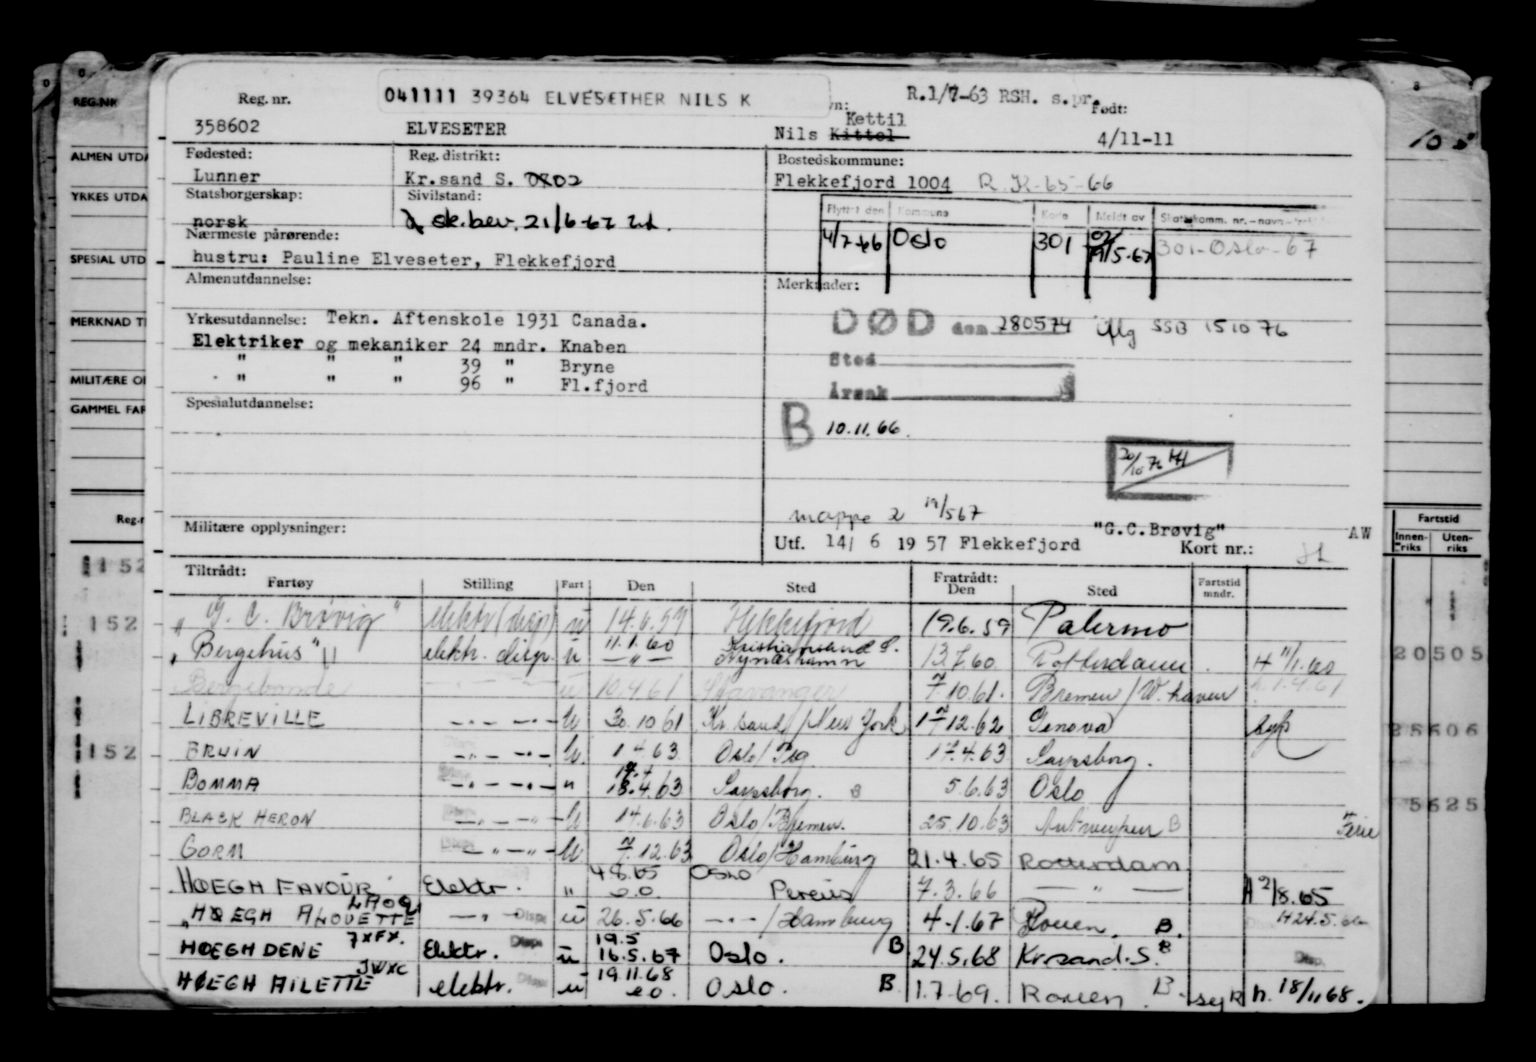 Reg. nr.
041111 39364 ELVESETHER NILS K
R.1/7-63 RSH. s.pr.
Født:
358602
ELVESETER
Nils Kittel
Kettil
4/11-11
Fødested:
Reg. distrikt:
Bostedskommune:
Lunner
Kr.sand S. 0802
Flekkefjord 1004
R.K-65-66
Statsborgerskap:
Sivilstand:
Flyttet den
Kommune
Kode
Meldt av
norsk
sk.bev. 21/6-62
4/7-66
Oslo
301
301-Oslo-67
Nærmeste pårørende:
hustru: Pauline Elveseter, Flekkefjord
Almenutdannelse:
Merknader:
Yrkesutdannelse: Tekn. Aftenskole 1931 Canada.
DØD den 280574
SSB 151076
Elektriker og mekaniker 24 mndr. Knaben
" " " 39 " Bryne
Sted
" " " 96 " Fl.fjord
Årsak
Spesialutdannelse:
B 10.11.66.
20/10 76
mappe 2 19/567
Militære opplysninger:
"G.C.Brøvig"
AW
Utf. 14/ 6 19 57 Flekkefjord
Kort nr.:
Tiltrådt:
Fartøy
Stilling
Fart
Den
Sted
Fratrådt:
Den
Sted
Fartstid mndr.
"G. C. Brøvig" elektr (disp) u 14.6.57 Flekkefjord 19.6.59 Palermo
"Bergehus" elektr. disp. u 11.1.60 Kristiansand S. Nynäshamn 13.7.60 Rotterdam H 11/1.60
Bergebonde u 10.4.61 Stavanger 7.10.61. Bremen/W.haven
LIBREVILLE 30.10 61 Kr.sand/New York 17 12.62 Genova syk
BRUIN 1 4 63 Oslo/ 17.4.63 Sarpsborg.
BOMMA 18.4.63 Sarpsborg. B 5.6.63 Oslo
BLACK HERON 14.6.63 Oslo/Bremen. 25.10.63 Antwerpen B Ferie
GORM 7.12.63 Oslo/Hamburg 21.4.65 Rotterdam
HØEGH FAVOUR Elektr. " 4 8.65 e.o. Oslo Pereus 7.3.66 — " — A 2/8.65
HØEGH ALOUETTE LAOQ — " — Disp. u 26.5.66 — " — /Hamburg 4-1.67 Rouen. B. H24.5.66
HØEGH DENE JXFX. Elektr. Disp. u 19.5 16.5.67 Oslo. B 24.5.68 Kr.sand.S. B Disp.
HØEGH AILETTE JWXC elektr. Disp. u 19.11.68 e o. Oslo. B 1.7.69. Rouen B syk h. 18/11 68.
REG.NR
ALMEN UTDA
YRKES UTDA
SPESIAL UTD
MERKNAD TI
MILITÆRE O
GAMMEL FAR
Reg.r
152
152
152
Fartstid
Innen-riks
Uten-riks
20505
25606
5625